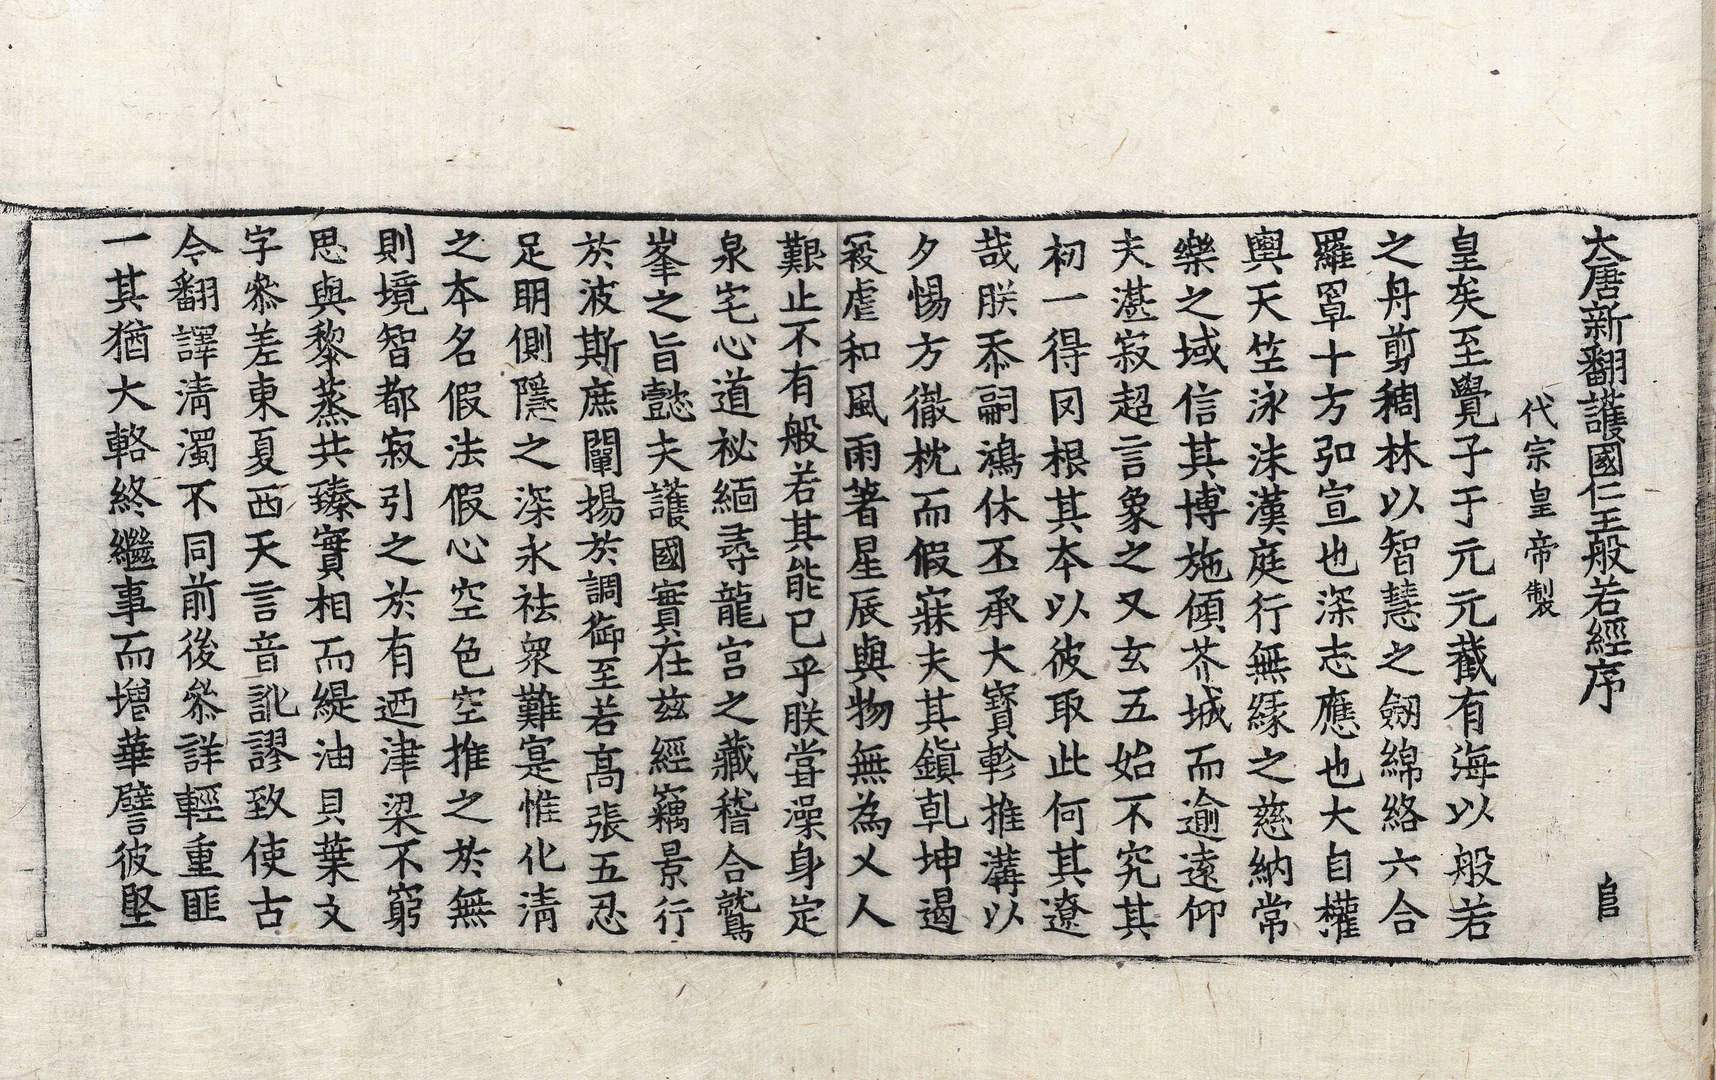 大唐新翻護國仁王般若經序 𦣹
代宗皇帝製
皇矣至覺子于元元截有海以般若
之舟剪稠林以智慧之劒綿絡六合
羅罩十方弘宣也深志應也大自權
輿天笁泳沫漢庭行無緣之慈納常
樂之域信其博施傾芥城而逾遠仰
夫湛寂超言象之又玄五始不究其
初一得罔根其本以彼取此何其遼
哉朕忝嗣鴻休丕承大寶軫推溝以
夕惕方徹枕而假寐夫其鎮乹坤遏
㓂虐和風雨著星辰與物無為乂人
艱止不有般若其能已乎朕甞澡身定
泉宅心道祕緬尋龍宫之藏稽合鷲
峯之旨懿夫護國實在兹經竊景行
於波斯庶闡揚於調御至若高張五忍
足明側隱之深永袪衆難寔惟化清
之本名假法假心空色空推之於無
則境智都寂引之於有迺津梁不窮
思與黎蒸共臻實相而緹油貝葉文
字叅差東夏西天言音訛謬致使古
令翻譯清濁不同前後叅詳輕重匪
一其猶大輅終繼事而增華譬彼堅